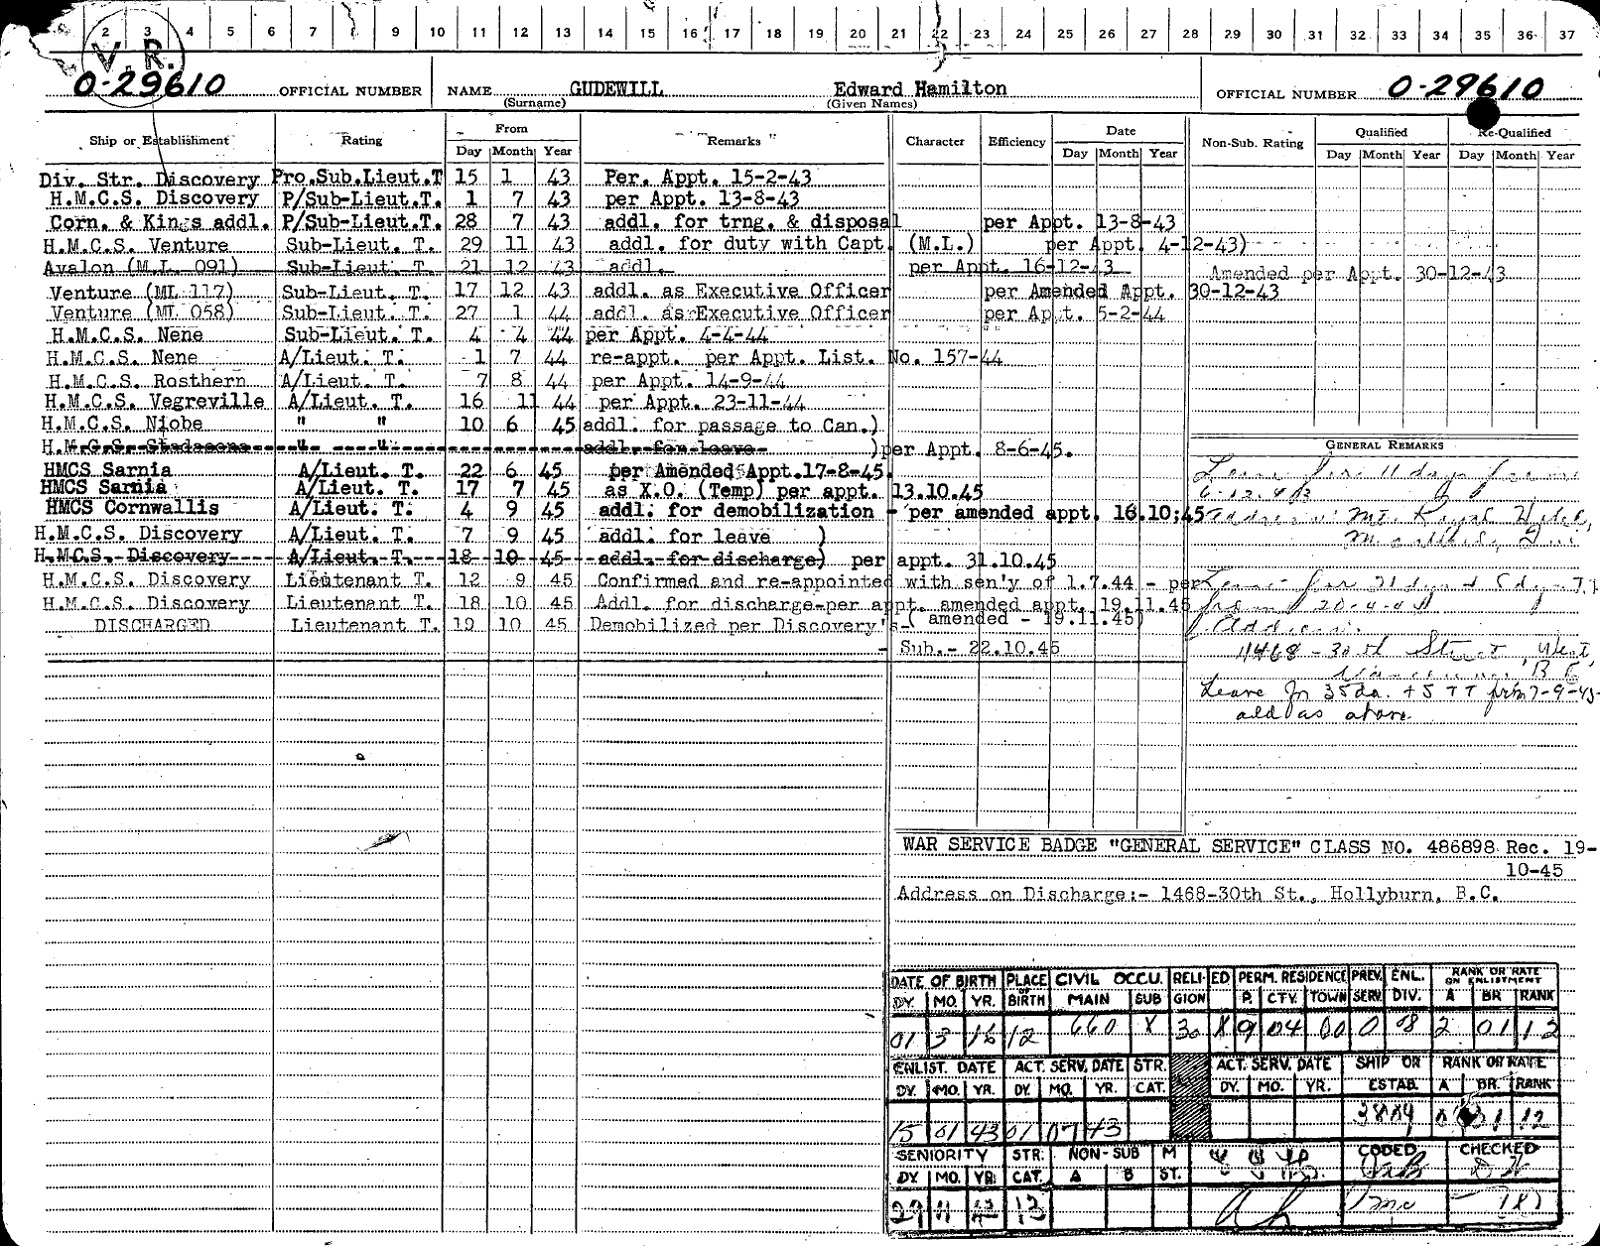 2 3 4 5 6 7 8 9 10 11 12 13 14 15 16 17 18 19 20 21 22 23 24 25 26 27 28 29 30 31 32 33 34 35 36 37
V.R.
O-29610 OFFICIAL NUMBER NAME GUDEWILL Edward Hamilton OFFICIAL NUMBER O-29610
(Surname) (Given Names)
Ship or Establishment Rating From Remarks Character Efficiency Date Non-Sub. Rating Qualified Re-Qualified
Day Month Year Day Month Year Day Month Year Day Month Year
Div. Str. Discovery Pro.Sub.Lieut.T 15 1 43 Per. Appt. 15-2-43
H.M.C.S. Discovery P/Sub-Lieut.T. 1 7 43 per Appt. 13-8-43
Corn. & Kings addl. P/Sub-Lieut.T. 28 7 43 addl. for trng. & disposal per Appt. 13-8-43
H.M.C.S. Venture Sub-Lieut. T. 29 11 43 addl. for duty with Capt. (M.L.) per Appt. 4-12-43)
Avalon (M.L. 091) Sub-Lieut. T. 21 12 43 addl. per Appt. 16-12-43 Amended per Appt. 30-12-43
Venture (ML 117) Sub-Lieut. T. 17 12 43 addl. as Executive Officer per Amended Appt. 30-12-43
Venture (ML 058) Sub-Lieut. T. 27 1 44 addl. as Executive Officer per Appt. 5-2-44
H.M.C.S. Nene Sub-Lieut. T. 4 4 44 per Appt. 4-4-44
H.M.C.S. Nene A/Lieut. T. 1 7 44 re-appt. per Appt. List. No. 157-44
H.M.C.S. Rosthern A/Lieut. T. 7 8 44 per Appt. 14-9-44
H.M.C.S. Vegreville A/Lieut. T. 16 11 44 per Appt. 23-11-44
H.M.C.S. Niobe " " 10 6 45 addl. for passage to Can.)
H.M.C.S. Stadacona " " addl. for leave )per Appt. 8-6-45. GENERAL REMARKS
HMCS Sarnia A/Lieut. T. 22 6 45 per Amended Appt.17-8-45. Leave for 11 days from
HMCS Sarnia A/Lieut. T. 17 7 45 as X.O. (Temp) per appt. 13.10.45 6-12-43
HMCS Cornwallis A/Lieut. T. 4 9 45 addl. for demobilization - per amended appt. 16.10;45 Address: Mt. Royal Hotel,
H.M.C.S. Discovery A/Lieut. T. 7 9 45 addl. for leave )
H.M.C.S. Discovery A/Lieut. T. 18 10 45 addl. for discharge) per appt. 31.10.45
H.M.C.S. Discovery Lieutenant T. 12 9 45 Confirmed and re-appointed with sen'y of 1.7.44 - per Leave for 21 days + 5 days T.T.
H.M.C.S. Discovery Lieutenant T. 18 10 45 Addl. for discharge-per appt. amended appt. 19.11.45 from 20-4-44
DISCHARGED Lieutenant T. 19 10 45 Demobilized per Discovery's ( amended - 19.11.45) Address:
- Sub.- 22.10.45 1468 - 30th Street, West
Vancouver, B.C.
Leave for 35 da. + 5 TT from 7-9-45
add as above.
WAR SERVICE BADGE "GENERAL SERVICE" CLASS NO. 486898 Rec. 19-
10-45
Address on Discharge:- 1468-30th St., Hollyburn, B.C.
DATE OF BIRTH PLACE OF BIRTH CIVIL OCCU. RELIGION ED PERM. RESIDENCE PREV. SERV. ENL. DIV. RANK OR RATE ON ENLISTMENT
DY. MO. YR. MAIN SUB P. CTY. TOWN A BR RANK
01 3 16 12 660 X 30 X 9 04 00 0 08 2 01 12
ENLIST. DATE ACT. SERV. DATE STR. CAT. ACT. SERV. DATE SHIP OR ESTAB. RANK OR RATE
DY. MO. YR. DY. MO. YR. DY. MO. YR. A BR. RANK
15 01 43 01 07 43 12
SENIORITY STR. CAT. NON-SUB M ST. CODED CHECKED
DY. MO. YR. A B
29 11 13